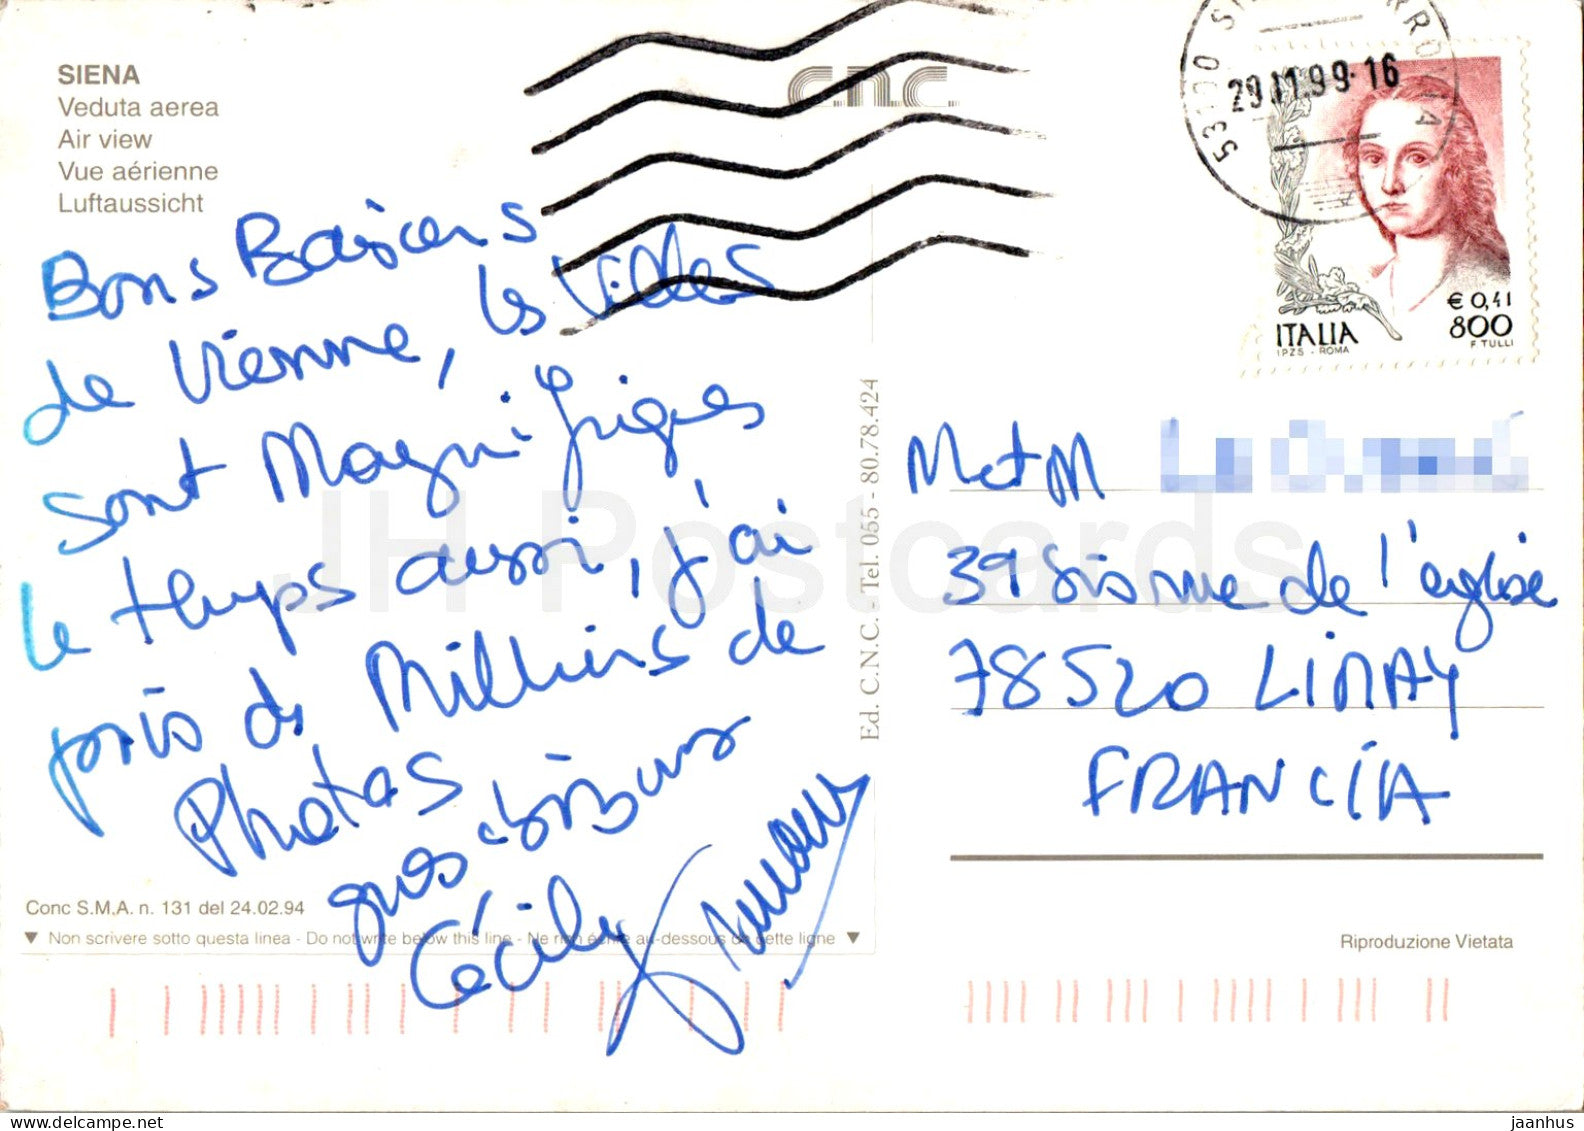 SIENA
Veduta aerea
Air view
Vue aérienne
Luftaussicht
c.n.c.
29.11.99-16
€ 0,41
800
ITALIA
F. TULLI
I.P.Z.S. - ROMA
Bons Baisers
de Vienne, les villes
sont Magnifiques
le temps aussi, j'ai
pris des Milliers de
Photos
gros bisous
Cécily
Ed. C.N.C. - Tel. 055 - 80.78.424
M et M
39 bis rue de l'église
78520 LIMAY
FRANCIA
Conc S.M.A. n. 131 del 24.02.94
▼ Non scrivere sotto questa linea - Do not write below this line - Ne rien écrire au-dessous de cette ligne ▼
Riproduzione Vietata
JH Postcards
jaanhus @ delcampe.net